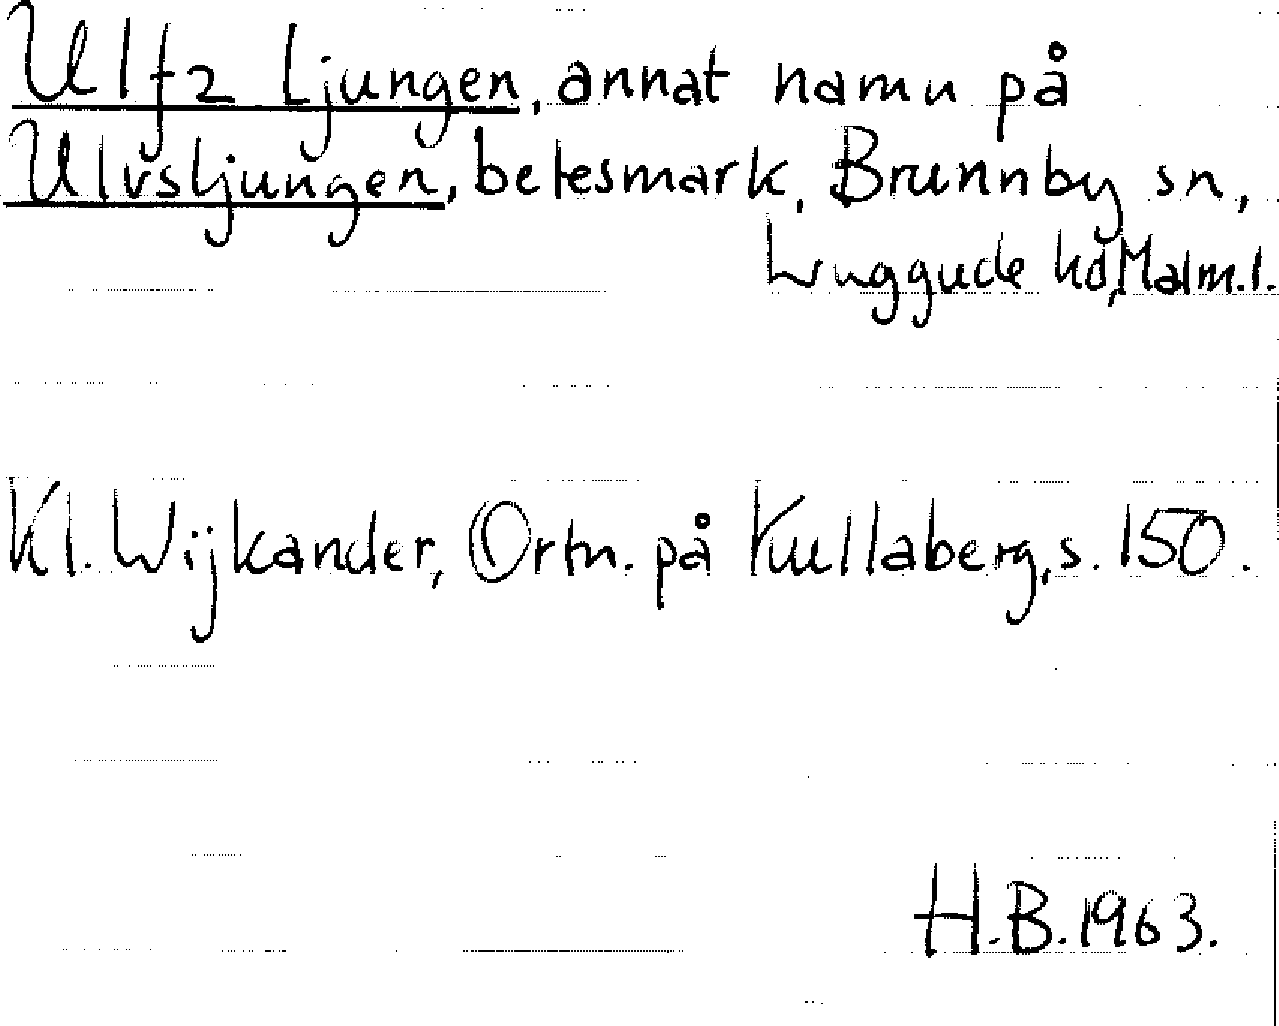 Ulfz Ljungen, annat namn på
Ulvsljungen, betesmark, Brunnby sn,
Luggude hd, Malm.l.
Kl. Wijkander, Ortn. på Kullaberg, s. 150.
H.B. 1963.